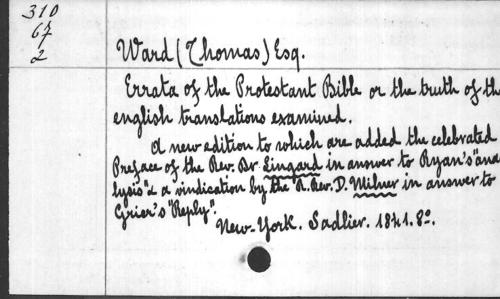 310
67
2
Ward (Thomas) Esq.
Errata of the Protestant Bible or the truth of the
english translations examined.
A new edition to which are added the celebrated
Preface of the Rev. Dr Lingard in answer to Ryan's "ana
lysis" & a vindication by the "R. Rev. D. Milner in answer to
Grier's "Reply".
New-York. Sadlier. 1841. 8º.